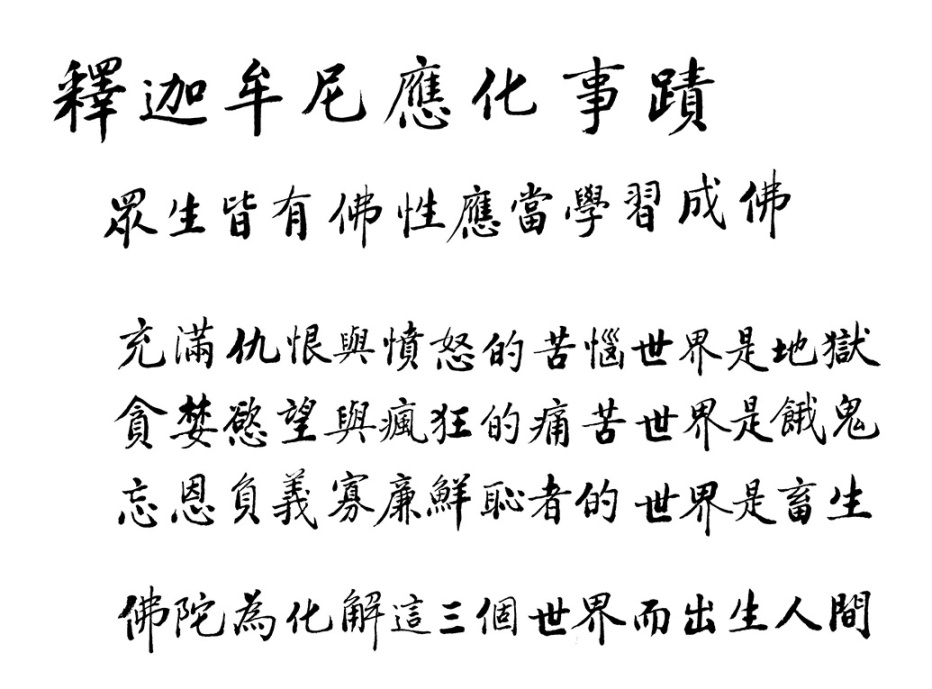 釋迦牟尼應化事蹟
眾生皆有佛性應當學習成佛
充滿仇恨與憤怒的苦惱世界是地獄
貪婪慾望與瘋狂的痛苦世界是餓鬼
忘恩負義寡廉鮮恥者的世界是畜生
佛陀為化解這三個世界而出生人間